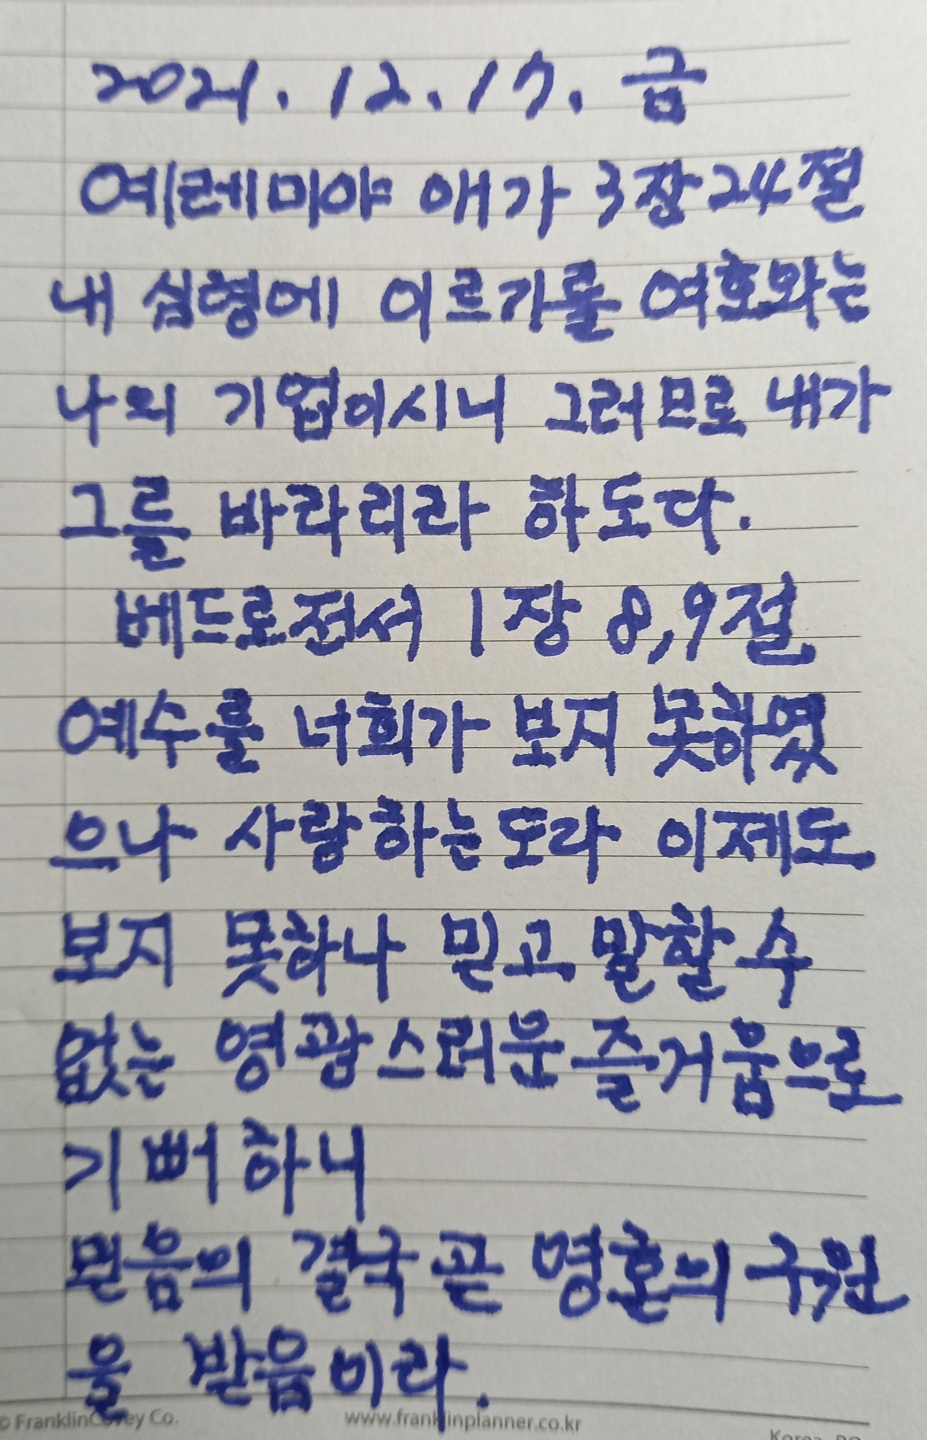 2021. 12. 17. 금
예레미야 애가 3장 24절
내 심령에 이르기를 여호와는
나의 기업이시니 그러므로 내가
그를 바라리라 하도다.
베드로전서 1장 8,9절
예수를 너희가 보지 못하였
으나 사랑하는도다 이제도
보지 못하나 믿고 말할 수
없는 영광스러운 즐거움으로
기뻐하니
믿음의 결국 곧 영혼의 구원
을 받음이라.
© FranklinCovey Co. www.franklinplanner.co.kr